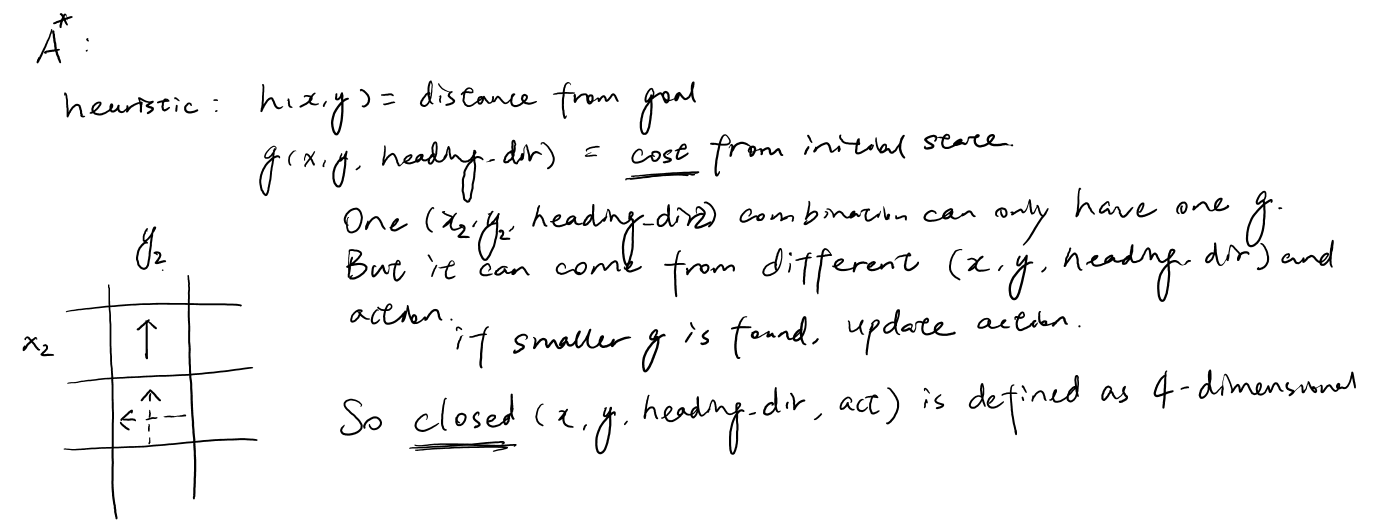 A* :
heuristic : h(x,y) = distance from goal
g(x,y, heading-dir) = cost from initial state.
One (x₂,y₂, heading-dir2) combination can only have one g.
But it can come from different (x,y, heading-dir) and
action. if smaller g is found, update action.
So closed (x,y, heading-dir, act) is defined as 4-dimensional
y₂
x₂